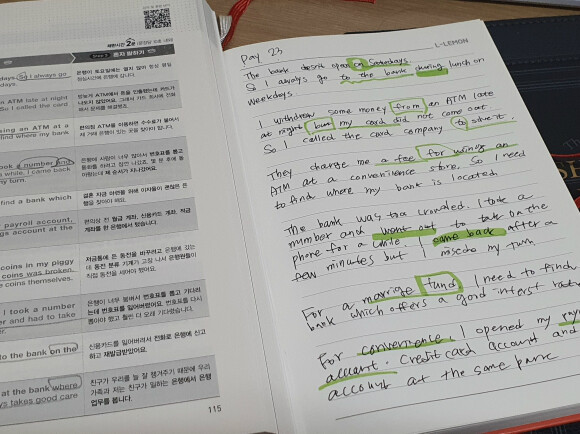 115
days. So I always go
은행이 토요일에는 열지 않아 항상 평일
점심시간에 은행에 갑니다.
an ATM late at night
So I called the card
밤늦게 ATM에서 돈을 인출했는데, 카드가
나오지 않았어요. 그래서 카드 회사에 전화
해서 문제를 해결했죠.
using an ATM at a
find where my bank
편의점 ATM을 이용하면 수수료가 붙어서
제 거래 은행이 있는 곳을 찾아야 합니다.
took a number and
a while, I came back
my turn.
은행에 사람이 너무 많아서 번호표를 뽑고
find a bank which
결혼 자금 마련을 위해 이자율이 괜찮은 은
행을 찾아야 해요.
payroll account,
gs account at the
편의상 전 월급 계좌, 신용카드 계좌, 적금
계좌를 한 은행에서 텄습니다.
coins in my piggy
coins was broken.
the coins themselves.
저금통에 든 동전을 바꾸려고 은행에 갔는
데 동전 분류 기계가 고장 나서 은행원들이
직접 동전을 세어야 했어요.
I took a number
er and had to take
은행이 너무 붐벼서 번호표를 뽑고 기다리
는데 번호표를 잃어버렸어요. 번호표를 다시
뽑아야 했고 훨씬 더 오래 기다렸습니다.
to the bank on the
신용카드를 잃어버려서 전화로 은행에 신고
하고 재발급받았어요.
at the bank where
ys takes good care
친구가 우리를 늘 잘 챙겨주기 때문에 우리
가족과 저는 친구가 일하는 은행에서 은행
업무를 봅니다.
L-LEMON
Day 23
The bank doesn't open on Saturdays.
So I always go to the bank during lunch on
weekdays.
I withdrew some money from an ATM late
at night but my card did not come out.
So I called the card company to solve it.
They charge me a fee for using an
ATM at a convenience store. So I need
to find where my bank is located.
The bank was too crowded. I took a
number and went out to take on the
phone for a while. I came back after a
few minutes but I missed my turn
For a marriage fund I need to find
bank which offers a good interst rate
For convenience, I opened my pay
account. Credit card account and
account at the same bank